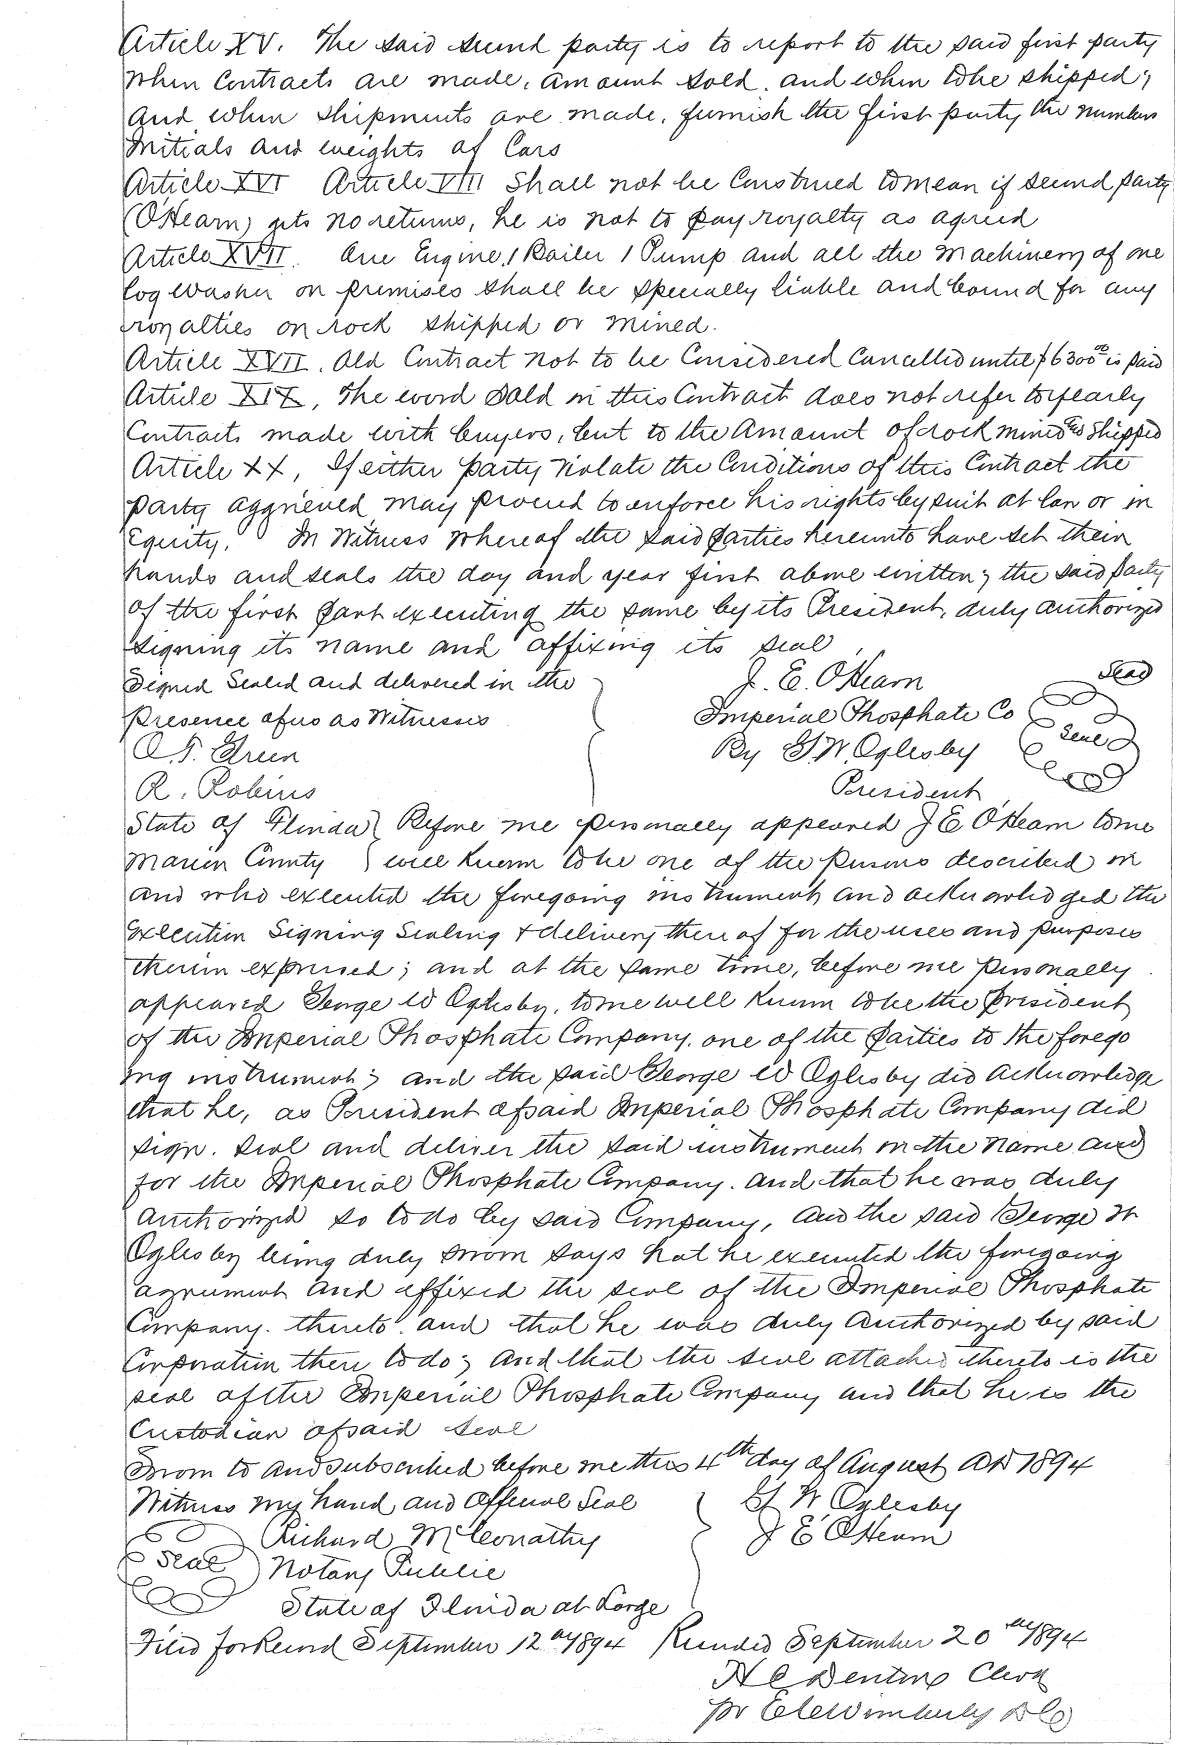 Article XV. The said second party is to report to the said first party
when Contracts are made, amount sold, and when to be shipped;
and when shipments are made, furnish the first party the numbers
initials and weights of Cars
Article XVI Article VIII Shall not be Construed to mean if second party
(O'Hearn) gets no returns, he is not to pay royalty as agreed
Article XVII. One Engine, 1 Boiler 1 Pump and all the machinery of one
log washer on premises shall be specially liable and bound for any
royalties on rock shipped or mined.
Article XVII. Old Contract not to be Considered Cancelled until $6300 00 is paid
Article XIX, The word Sold in this Contract does not refer to yearly
Contracts made with buyers, but to the amount of rock mined & shipped
Article XX, If either party violate the Conditions of this Contract the
party aggrieved may proceed to enforce his rights by suit at law or in
Equity. In Witness whereof the said parties hereunto have set their
hands and seals the day and year first above written; the said party
of the first part executing the same by its President, duly authorized
signing its name and affixing its seal
Signed Sealed and delivered in the J. E. O'Hearn Seal
presence of us as Witnesses Imperial Phosphate Co
O. T. Green By G. W. Oglesby Seal
R. Robins President
State of Florida } Before me personally appeared J E O'Hearn to me
Marion County } well known to be one of the persons described in
and who executed the foregoing instrument and acknowledged the
execution signing sealing & delivery thereof for the uses and purposes
therein expressed; and at the same time, before me personally
appeared George W Oglesby, to me well known to be the President
of the Imperial Phosphate Company. one of the parties to the forego
ing instrument; and the said George W Oglesby did acknowledge
that he, as President of said Imperial Phosphate Company did
sign. seal and deliver the said instrument in the name and
for the Imperial Phosphate Company. and that he was duly
authorized so to do by said Company, and the said George W
Oglesby being duly sworn says hat he executed the foregoing
agreement and affixed the seal of the Imperial Phosphate
Company. thereto. and that he was duly authorized by said
Corporation there to do; and that the seal attached thereto is the
seal of the Imperial Phosphate Company and that he is the
Custodian of said seal
Sworn to and subscribed before me this 4th day of August AD 1894
Witness my hand and Official Seal G W Oglesby
Richard McConathy J E O'Hearn
Seal Notary Public
State of Florida at Large
Filed for Record September 12th 1894 Recorded September 20th 1894
H C Denting Clerk
pr E C Wimberly D C